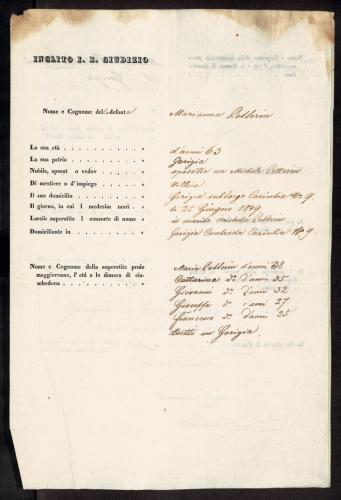 INCLITO I. R. GIUDIZIO
Nome e Cognome del defunta Marianna Petterin
La sua età d'anni 63
La sua patria Gorizia
Nubile, sposat o vedov sposata con Michele Petterin
Di mestiere o d'impiego Villica
Il suo domicilio Gorizia subborgo Carintia № 9
Il giorno, in cui l medesim morì li 25 Giugno 1849
Lasciò superstite l consorte di nome il marito Michele Petterin
Domiciliante in Gorizia Contrada Carintia № 9
Nome e Cognome della superstite prole Maria Petterin d'anni 38
maggiorenne, l'età e la dimora di cia- Catterina do D'anni 35
schedona Giovanni do D'anni 32
Giuseppa do d'anni 27
Francesco do D'anni 25
tutti in Gorizia